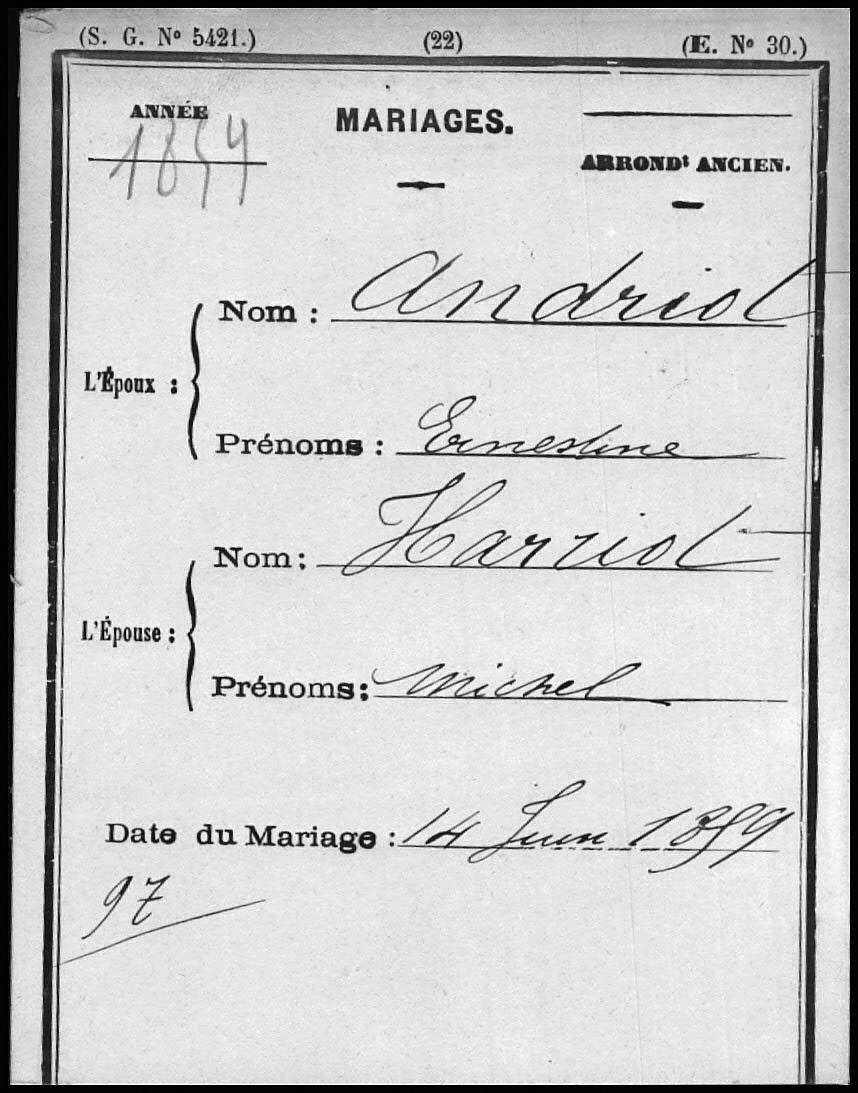 (S. G. Nº 5421.) (22) (E. Nº 30.)
ANNÉE
1859
MARIAGES.
ARRONDᵗ ANCIEN.
L'Époux :
Nom : Andriot
Prénoms : Ernestine
L'Épouse :
Nom : Harriot
Prénoms : Michel
Date du Mariage : 14 Juin 1859
97